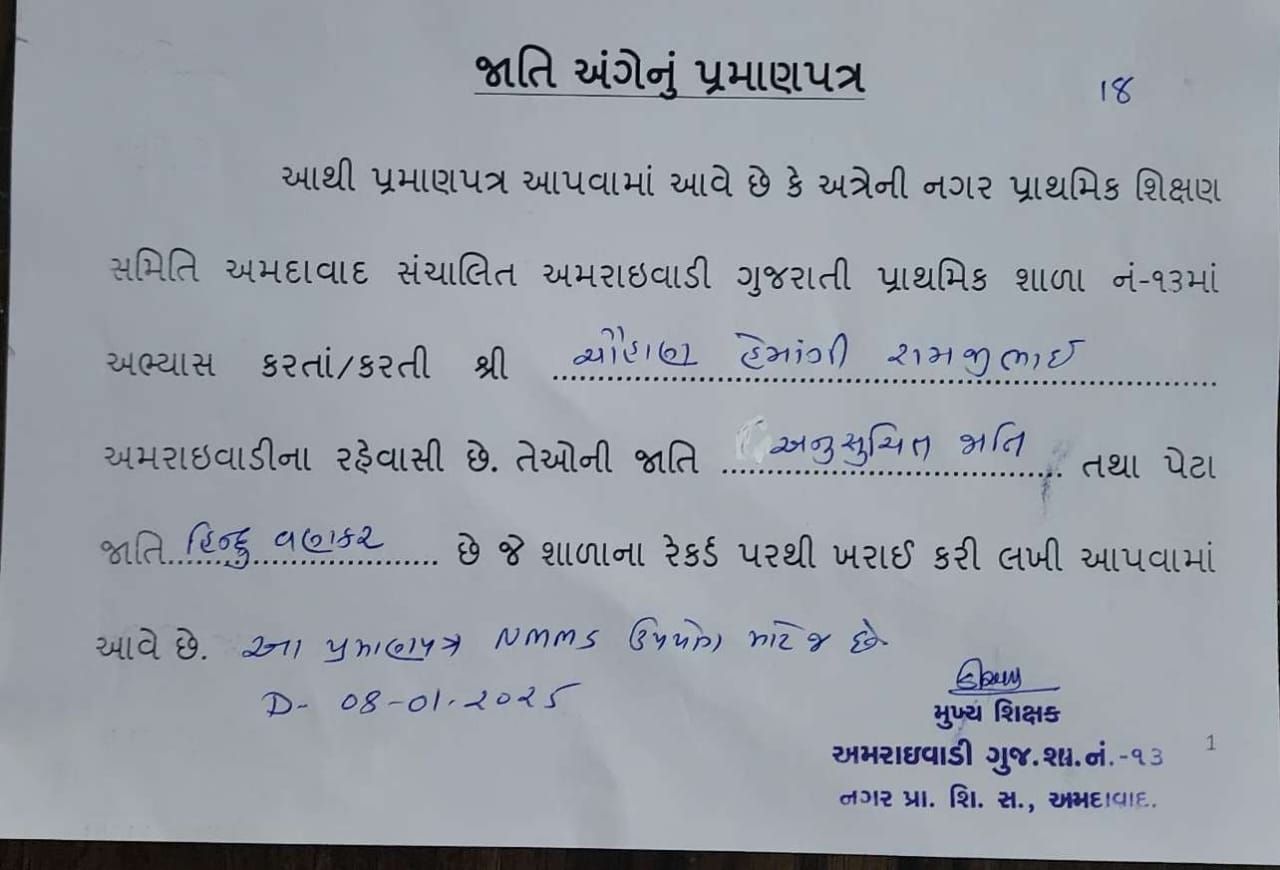 જાતિ અંગેનું પ્રમાણપત્ર
18
આથી પ્રમાણપત્ર આપવામાં આવે છે કે અત્રેની નગર પ્રાથમિક શિક્ષણ
સમિતિ અમદાવાદ સંચાલિત અમરાઇવાડી ગુજરાતી પ્રાથમિક શાળા નં-૧૩માં
અભ્યાસ કરતાં/કરતી શ્રી ચૌહાણ હેમાંગી રામજીભાઈ
અમરાઇવાડીના રહેવાસી છે. તેઓની જાતિ અનુસુચિત જાતિ તથા પેટા
જાતિ હિન્દુ વણકર છે જે શાળાના રેકર્ડ પરથી ખરાઈ કરી લખી આપવામાં
આવે છે. આ પ્રમાણપત્ર NMMS ઉપયોગ માટે જ છે.
D- 08-01-2025
મુખ્ય શિક્ષક
અમરાઇવાડી ગુજ.શા.નં.-૧૩
નગર પ્રા. શિ. સ., અમદાવાદ.
1